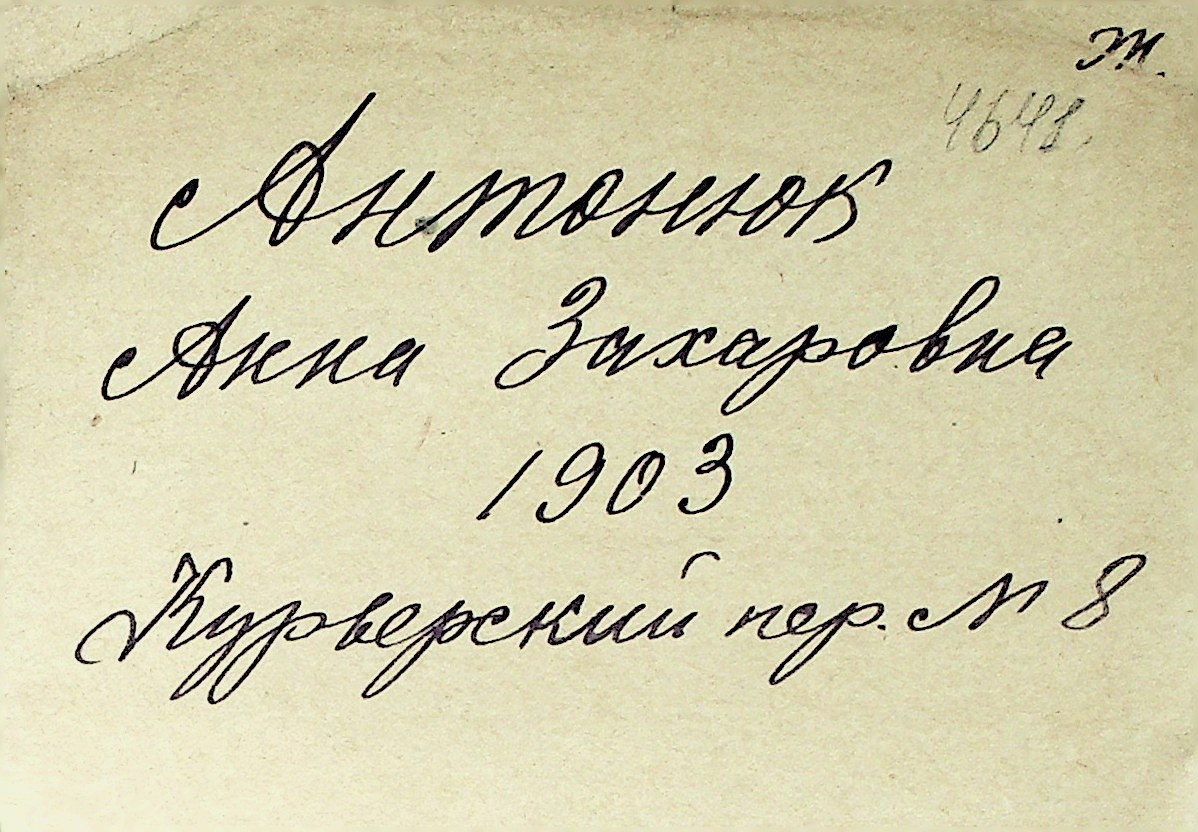 ж.
4648.
Антонюк
Анна Захаровна
1903
Курьерский пер. N 8